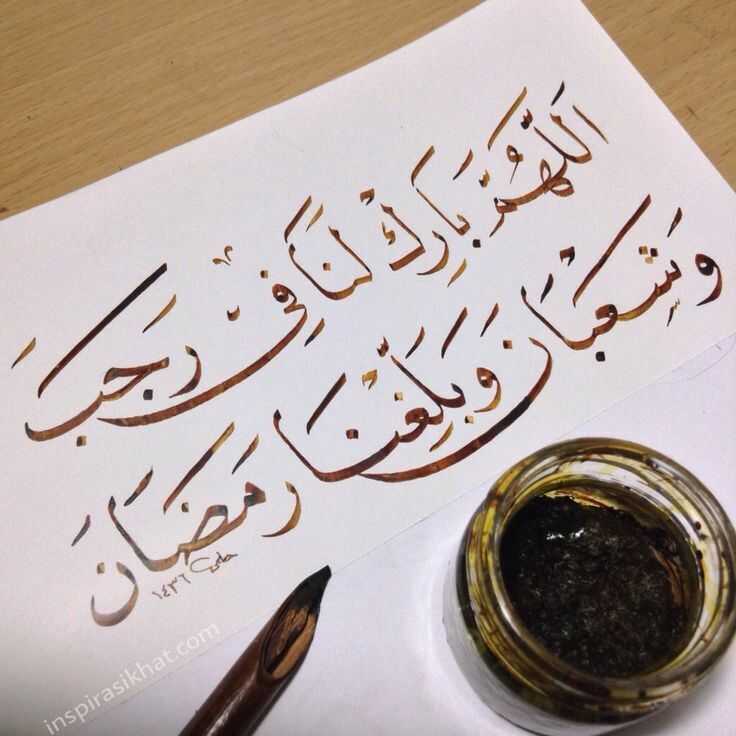 اَللّٰهُمَّ بَارِكْ لَنَا فِيْ رَجَبَ
وَشَعْبَانَ وَبَلِّغْنَا رَمَضَانَ
١٤٣٦
inspirasikhat.com